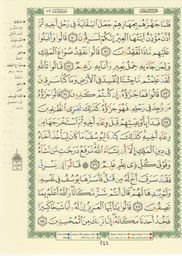 فَلَمَّا جَهَّزَهُم بِجَهَازِهِمْ جَعَلَ السِّقَايَةَ فِي رَحْلِ أَخِيهِ ثُمَّ
أَذَّنَ مُؤَذِّنٌ أَيَّتُهَا الْعِيرُ إِنَّكُمْ لَسَارِقُونَ ٧٠ قَالُوا وَأَقْبَلُوا
عَلَيْهِم مَّاذَا تَفْقِدُونَ ٧١ قَالُوا نَفْقِدُ صُوَاعَ الْمَلِكِ
وَلِمَن جَاءَ بِهِ حِمْلُ بَعِيرٍ وَأَنَا بِهِ زَعِيمٌ ٧٢ قَالُوا تَاللَّهِ
لَقَدْ عَلِمْتُم مَّا جِئْنَا لِنُفْسِدَ فِي الْأَرْضِ وَمَا كُنَّا سَارِقِينَ
٧٣ قَالُوا فَمَا جَزَاؤُهُ إِن كُنتُمْ كَاذِبِينَ ٧٤ قَالُوا جَزَاؤُهُ
مَن وُجِدَ فِي رَحْلِهِ فَهُوَ جَزَاؤُهُ كَذَلِكَ نَجْزِي الظَّالِمِينَ
٧٥ فَبَدَأَ بِأَوْعِيَتِهِمْ قَبْلَ وِعَاءِ أَخِيهِ ثُمَّ اسْتَخْرَجَهَا مِن
وِعَاءِ أَخِيهِ كَذَلِكَ كِدْنَا لِيُوسُفَ مَا كَانَ لِيَأْخُذَ أَخَاهُ
فِي دِينِ الْمَلِكِ إِلَّا أَن يَشَاءَ اللَّهُ نَرْفَعُ دَرَجَاتٍ مَّن نَّشَاءُ
وَفَوْقَ كُلِّ ذِي عِلْمٍ عَلِيمٌ ٧٦ قَالُوا إِن يَسْرِقْ
فَقَدْ سَرَقَ أَخٌ لَّهُ مِن قَبْلُ فَأَسَرَّهَا يُوسُفُ فِي نَفْسِهِ
وَلَمْ يُبْدِهَا لَهُمْ قَالَ أَنتُمْ شَرٌّ مَّكَانًا وَاللَّهُ أَعْلَمُ بِمَا
تَصِفُونَ ٧٧ قَالُوا يَا أَيُّهَا الْعَزِيزُ إِنَّ لَهُ أَبًا شَيْخًا كَبِيرًا
فَخُذْ أَحَدَنَا مَكَانَهُ إِنَّا نَرَاكَ مِنَ الْمُحْسِنِينَ ٧٨
٢٤٤